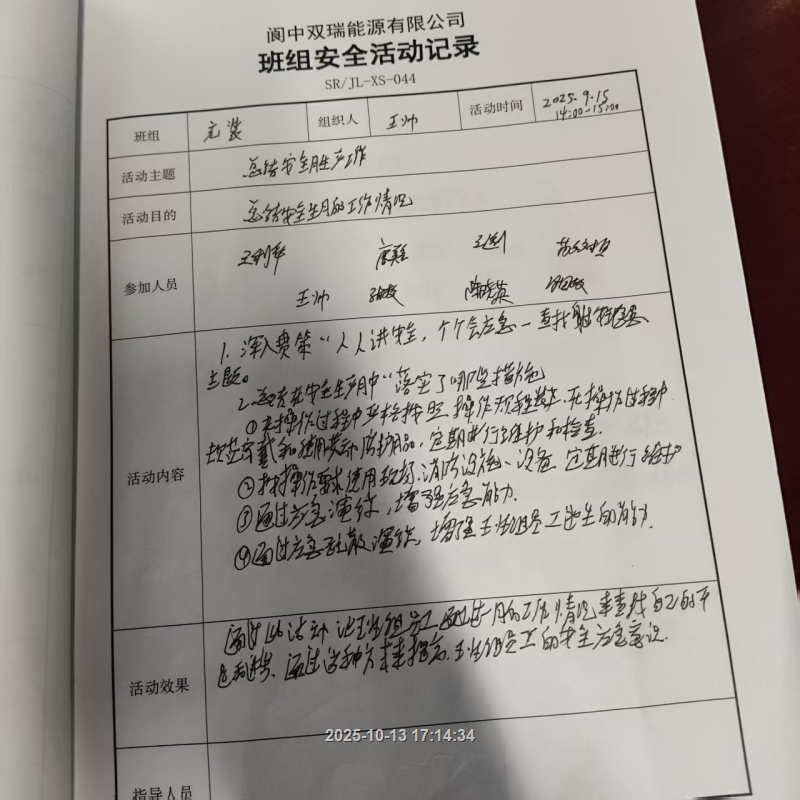 阆中双瑞能源有限公司
班组安全活动记录
SR/JL-XS-044
班组 充装 组织人 王帅 活动时间 2025.9.15
14:00-15:00
活动主题 总结安全月生产工作
活动目的 总结安全生产月的工作情况
参加人员
王帅
活动内容
1. 深入贯策“人人讲安全,个个会应急—查找身边隐患
主题。
2. 总结在安全生产月中“落实了哪些措施
①在操作过程中严格按照操作规程操作. 在操作过程中
规范穿戴和使用劳动防护用品,定期进行维护和检查.
②按操作要求使用现场消防设施、设备 定期进行维护
③通过应急演练,增强应急能力.
④通过应急疏散演练,增强王班组员工逃生的能力.
活动效果
通过此活动 让班组员工 通过月的工作情况来查找自己的不
足和进步. 通过这种方来来提高. 班组员工的安全应急意识.
指导人员
2025-10-13 17:14:34